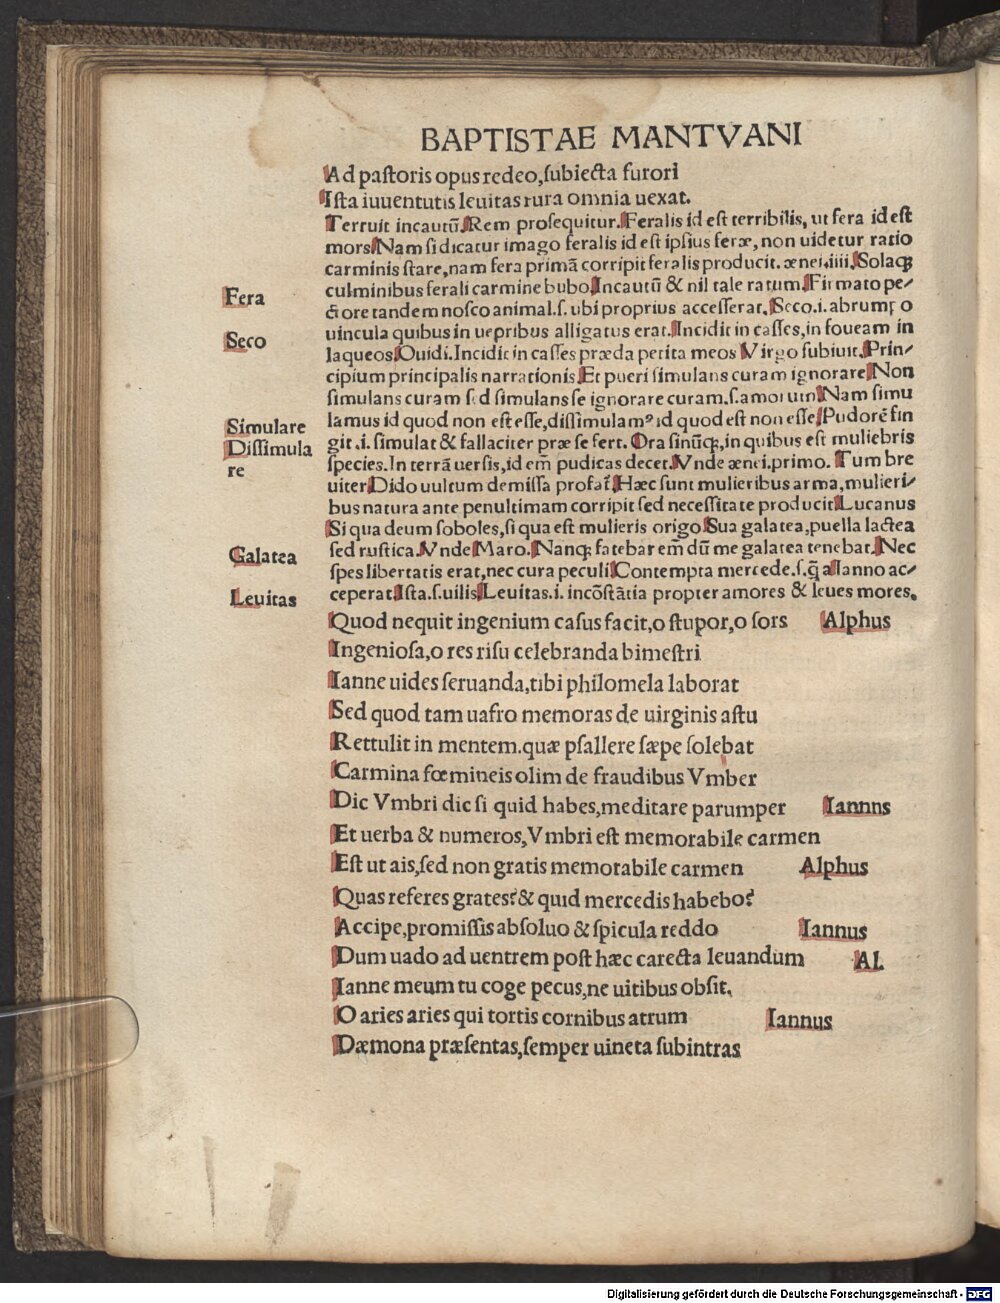 BAPTISTAE MANTVANI
Ad pastoris opus redeo,subiecta furori
Ista iuuentutis leuitas rura omnia uexat.
Terruit incautū.Rem prosequitur.Feralis id est terribilis, ut fera id est
mors.Nam si dicatur imago feralis id est ipsius feræ, non uidetur ratio
carminis stare,nam fera primā corripit feralis producit. ænei.iiii.Solaqꝫ
Fera culminibus ferali carmine bubo.Incautū & nil tale ratum.Firmato pe⸗
ctore tandem nosco animal.s. ubi proprius accesserat.Seco.i.abrumpo
Seco uincula quibus in uepribus alligatus erat.Incidit in casses,in foueam in
laqueos.Ouidi.Incidit in casses præda petita meos Virgo subiuit.Prin⸗
cipium principalis narrationis.Et pueri simulans curam ignorare.Non
simulans curam sed simulans se ignorare curam.s.amorum.Nam simu
Simulare lamus id quod non est esse,dissimulamꝰ id quod est non esse.Pudorē fin
Dissimula git.i. simulat & fallaciter præ se fert. Ora sinūqꝫ,in quibus est muliebris
re species.In terrā uersis,id em̄ pudicas decet.Vnde ænei.primo. Tum bre
uiter Dido uultum demissa profat̄.Hæc sunt mulieribus arma,mulieri⸗
bus natura ante penultimam corripit sed necessitate producit.Lucanus
Si qua deum soboles,si qua est mulieris origo.Sua galatea,puella lactea
Galatea sed rustica.Vnde Maro.Nanqꝫ fatebar em̄ dū me galatea tenebat.Nec
spes libertatis erat,nec cura peculi.Contempta mercede.s.q̄ a Ianno ac⸗
Leuitas ceperat.Ista.s.uilis.Leuitas.i. incōstātia propter amores & leues mores.
Quod nequit ingenium casus facit,o stupor,o sors Alphus
Ingeniosa,o res risu celebranda bimestri
Ianne uides seruanda,tibi philomela laborat
Sed quod tam uafro memoras de uirginis astu
Rettulit in mentem.quæ psallere sæpe solebat
Carmina fœmineis olim de fraudibus Vmber
Dic Vmbri dic si quid habes,meditare parumper Iannns
Et uerba & numeros,Vmbri est memorabile carmen
Est ut ais,sed non gratis memorabile carmen Alphus
Quas referes grates?& quid mercedis habebo?
Accipe,promissis absoluo & spicula reddo Iannus
Dum uado ad uentrem post hæc carecta leuandum Al.
Ianne meum tu coge pecus,ne uitibus obsit.
O aries aries qui tortis cornibus atrum Iannus
Dæmona præsentas,semper uineta subintras
Digitalisierung gefördert durch die Deutsche Forschungsgemeinschaft - DFG